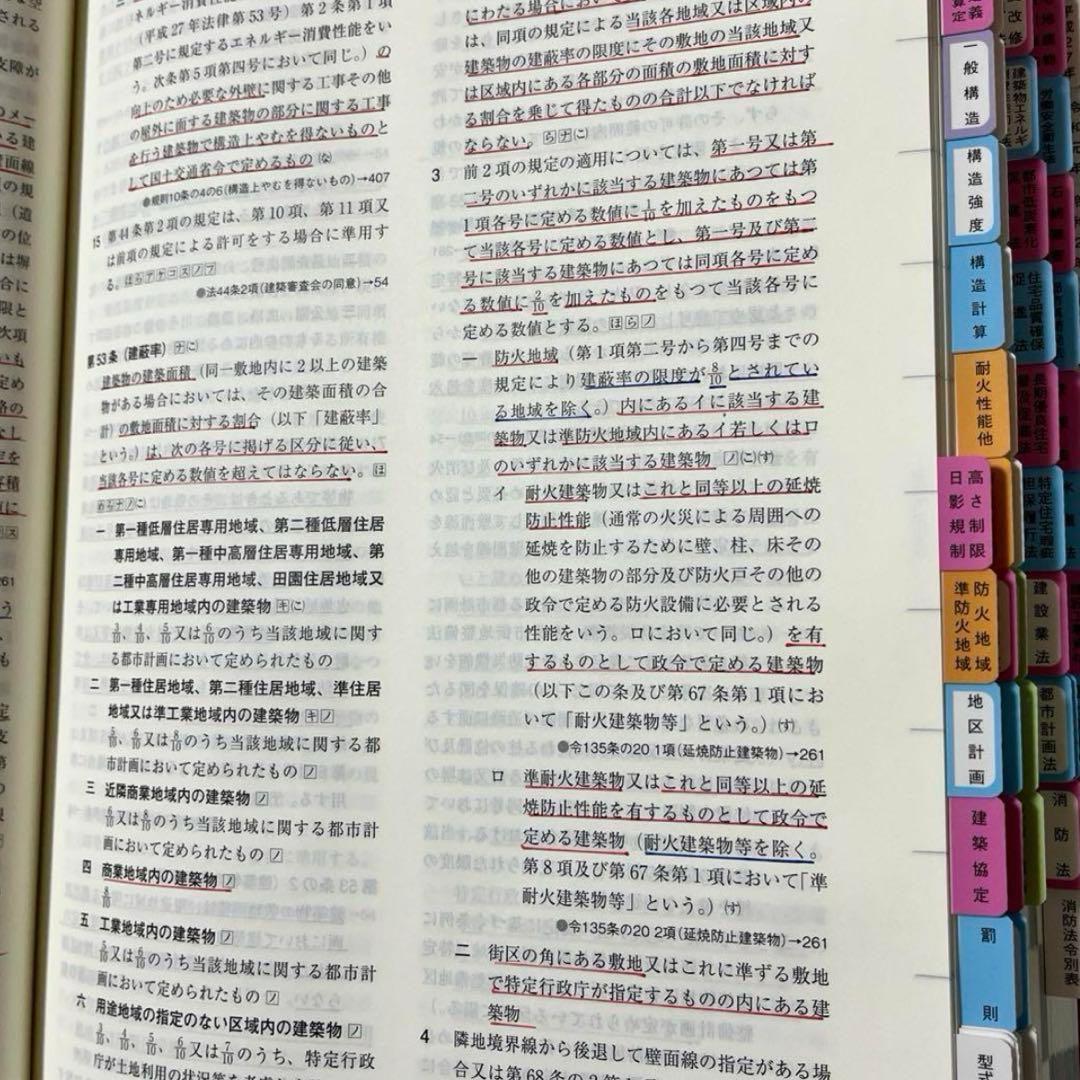 ネルギー消費性能
(平成27年法律第53号)第2条第1項
第二号に規定するエネルギー消費性能をい
う。次条第5項第四号において同じ。)の
向上のため必要な外壁に関する工事その他
の屋外に面する建築物の部分に関する工事
を行う建築物で構造上やむを得ないものと
して国土交通省令で定めるもの(な)
●規則10条の4の6(構造上やむを得ないもの)→407
15 第44条第2項の規定は、第10項、第11項又
は前項の規定による許可をする場合に準用す
る。
●法44条2項(建築審査会の同意)→54
第53条(建蔽率)
建築物の建築面積(同一敷地内に2以上の建築
物がある場合においては、その建築面積の合
計)の敷地面積に対する割合(以下「建蔽率」
という。)は、次の各号に掲げる区分に従い、
当該各号に定める数値を超えてはならない。
一 第一種低層住居専用地域、第二種低層住居
専用地域、第一種中高層住居専用地域、第
二種中高層住居専用地域、田園住居地域又
は工業専用地域内の建築物
3/10、4/10、5/10又は6/10のうち当該地域に関す
る都市計画において定められたもの
二 第一種住居地域、第二種住居地域、準住居
地域又は準工業地域内の建築物
5/10、6/10又は8/10のうち当該地域に関する都
市計画において定められたもの
三 近隣商業地域内の建築物
6/10又は8/10のうち当該地域に関する都市計
画において定められたもの
四 商業地域内の建築物
8/10
五 工業地域内の建築物
5/10又は6/10のうち当該地域に関する都市計
画において定められたもの
六 用途地域の指定のない区域内の建築物
3/10、4/10、5/10、6/10又は7/10のうち、特定行政
庁が土地利用の状況等を考慮し
にわたる場合において
は、同項の規定による当該各地域又は区域内の
建築物の建蔽率の限度にその敷地の当該地域又
は区域内にある各部分の面積の敷地面積に対す
る割合を乗じて得たものの合計以下でなければ
ならない。
3 前2項の規定の適用については、第一号又は第
二号のいずれかに該当する建築物にあつては第
1項各号に定める数値に1/10を加えたものをもつ
て当該各号に定める数値とし、第一号及び第二
号に該当する建築物にあつては同項各号に定め
る数値に2/10を加えたものをもつて当該各号に
定める数値とする。
一 防火地域(第1項第二号から第四号までの
規定により建蔽率の限度が8/10とされてい
る地域を除く。)内にあるイに該当する建
築物又は準防火地域内にあるイ若しくはロ
のいずれかに該当する建築物
イ 耐火建築物又はこれと同等以上の延焼
防止性能(通常の火災による周囲への
延焼を防止するために壁、柱、床その
他の建築物の部分及び防火戸その他の
政令で定める防火設備に必要とされる
性能をいう。ロにおいて同じ。)を有
するものとして政令で定める建築物
(以下この条及び第67条第1項にお
いて「耐火建築物等」という。)(す)
●令135条の20 1項(延焼防止建築物)→261
ロ 準耐火建築物又はこれと同等以上の延
焼防止性能を有するものとして政令で
定める建築物(耐火建築物等を除く。
第8項及び第67条第1項において「準
耐火建築物等」という。)(す)
●令135条の20 2項(延焼防止建築物)→261
二 街区の角にある敷地又はこれに準ずる敷地
で特定行政庁が指定するものの内にある建
築物
4 隣地境界線から後退して壁面線の指定がある場
合又は第68条の2第1
一般構造
構造強度
構造計算
耐火性能他
高さ制限
日影規制
防火地域
準防火地域
地区計画
建築協定
罰則
型式
建設業法
都市計画法
消防法
消防法令別表